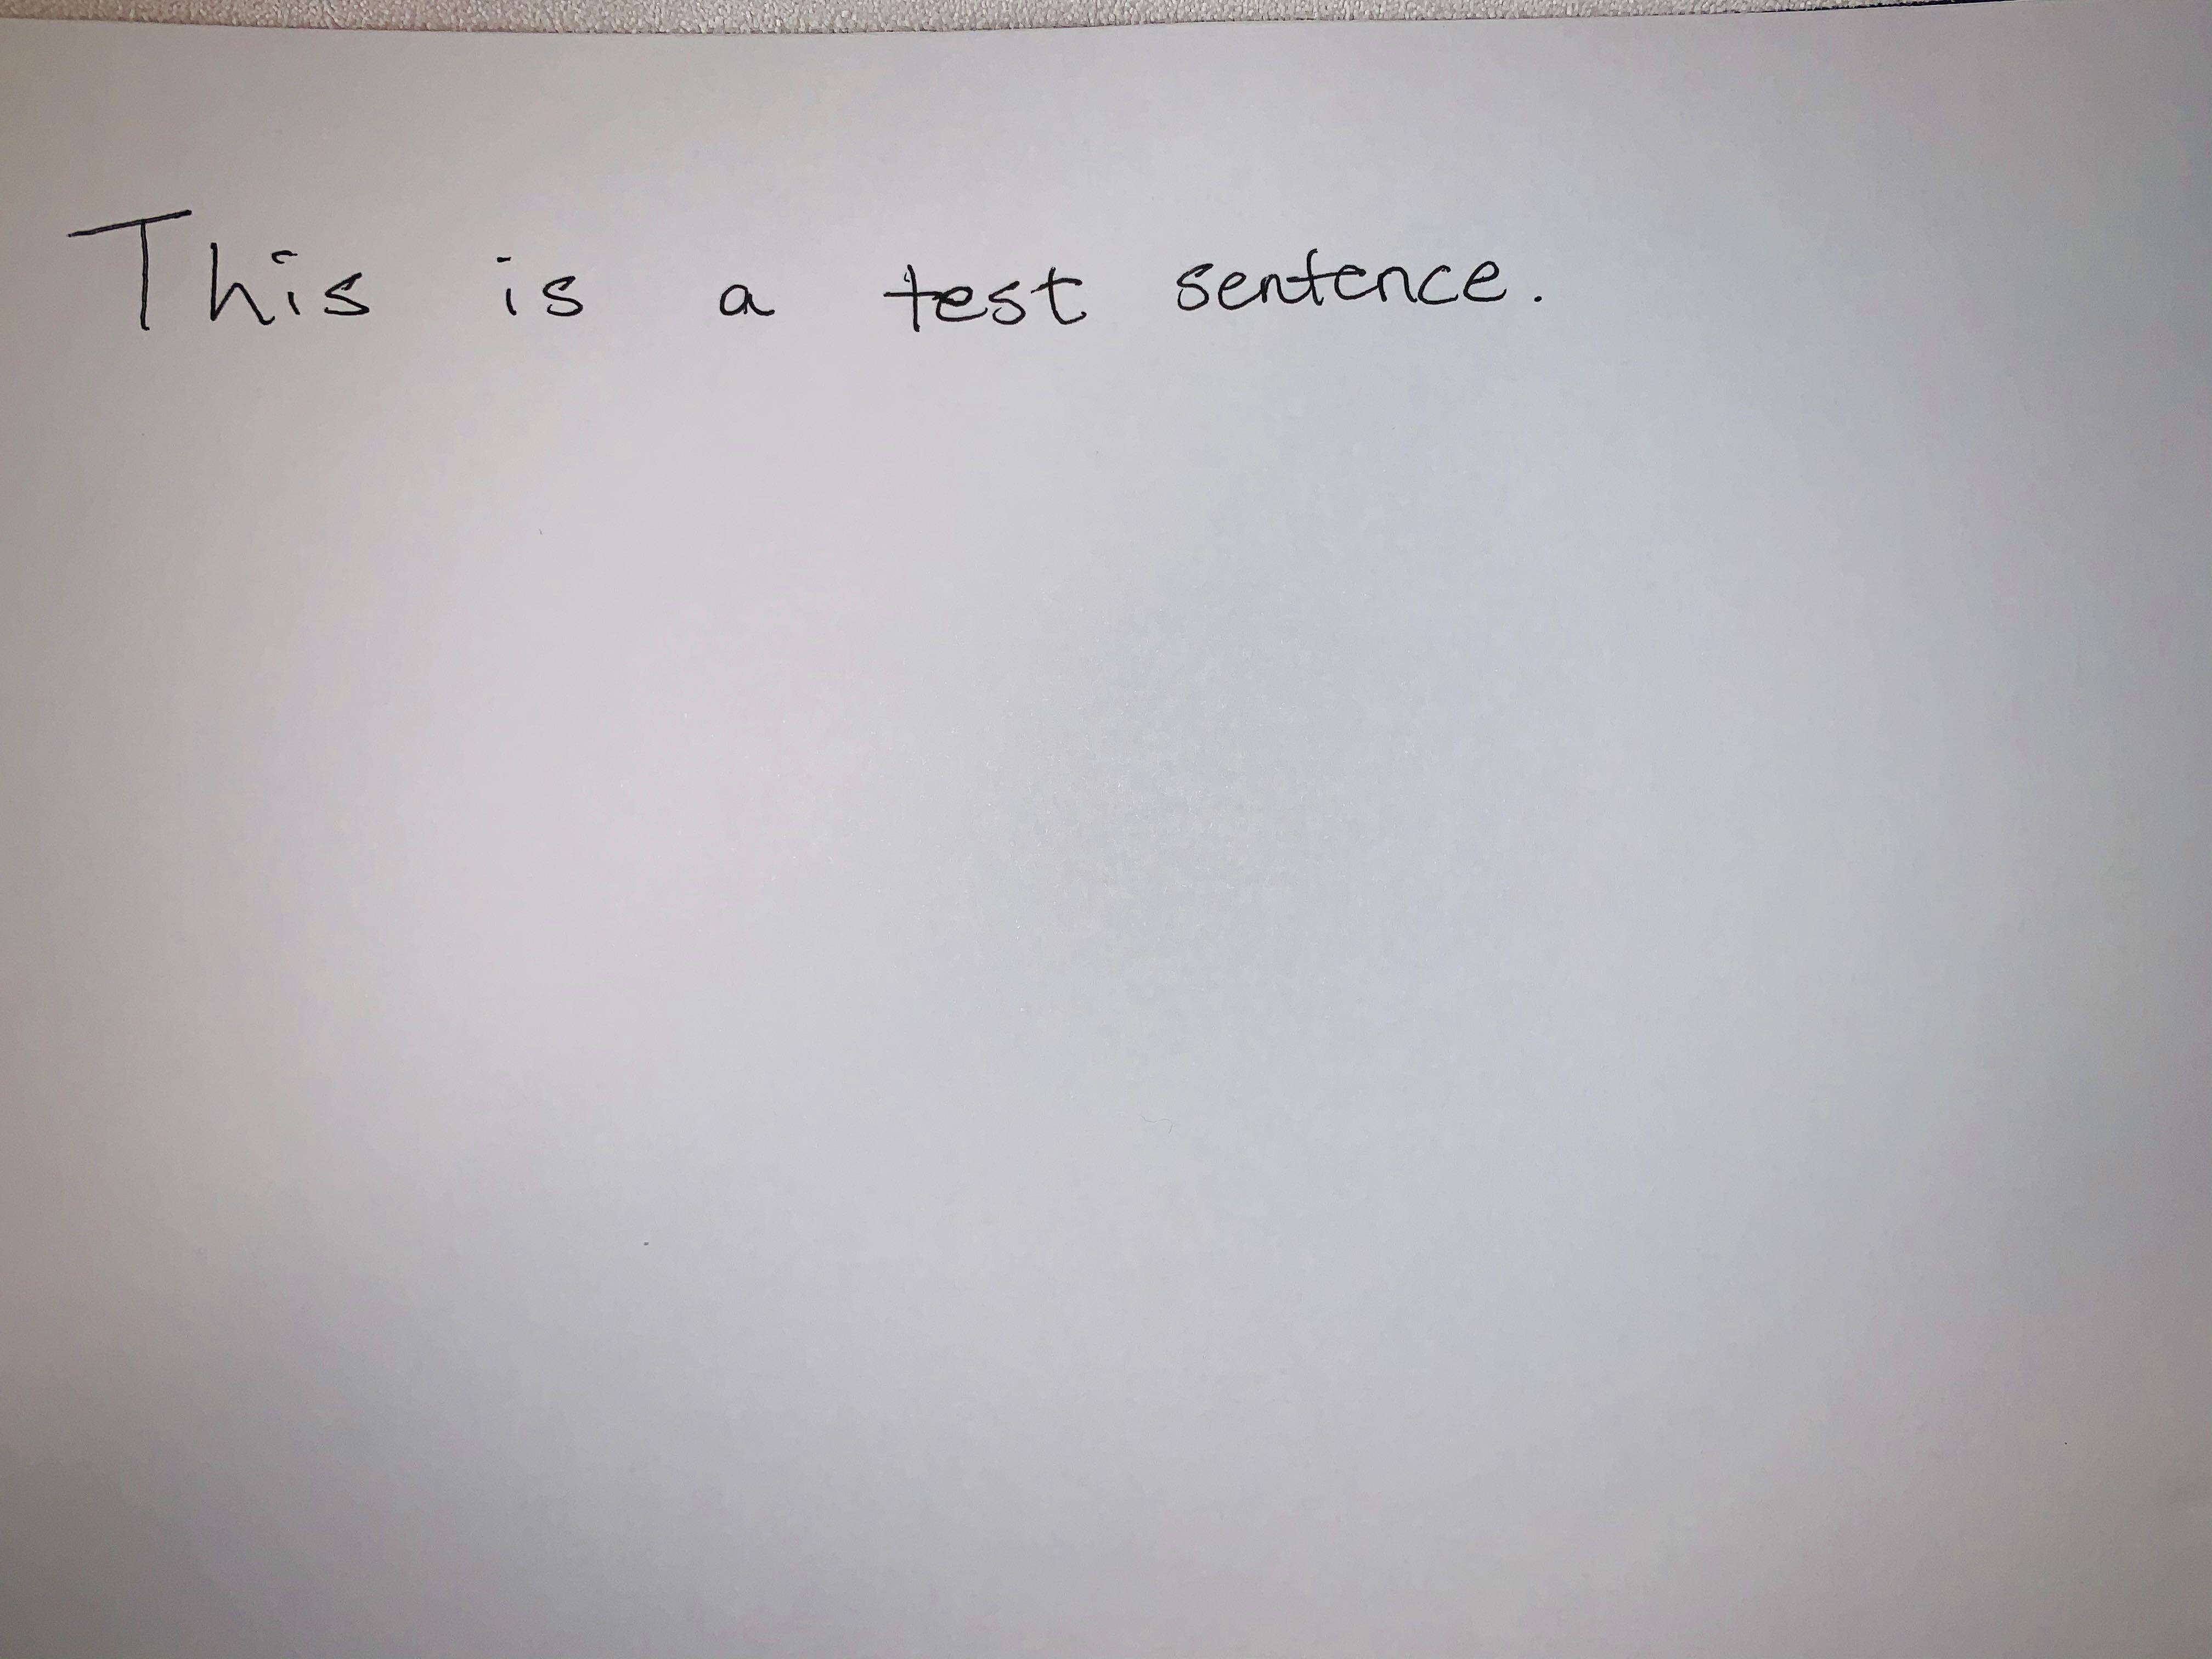 This is a test sentence.